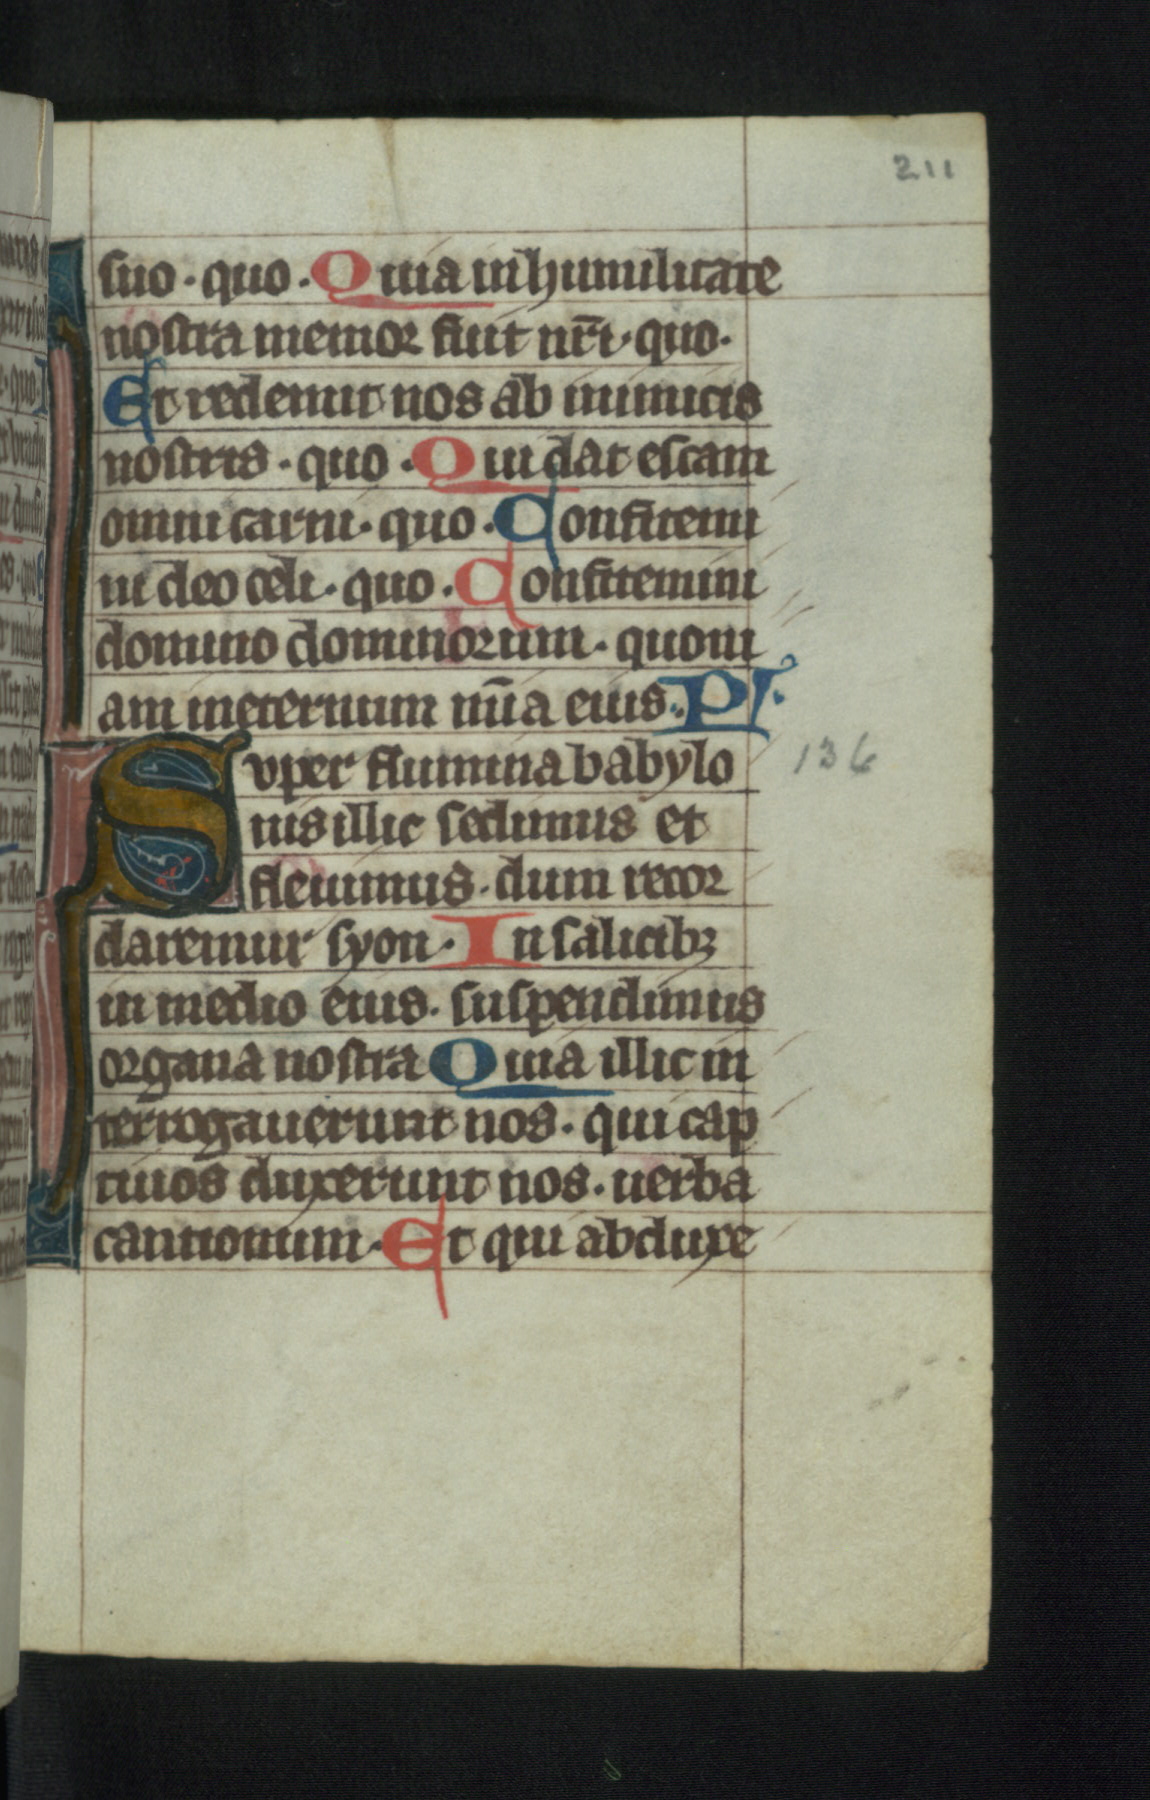 211
suo · quo · Quia in humilitate
nostra memor fuit nr̄i · quo ·
Et redemit nos ab inimicis
nostris · quo · Qui dat escam
omni carni · quo · Confitemi
ni deo celi · quo · Confitemini
domino dominorum · quoni
am in eternum mīa eius · Ps ·
Super flumina babylo
136
nis illic sedimus et
fleuimus · dum recor
daremur syon · In salicibꝫ
in medio eius · suspendimus
organa nostra Quia illic in
terrogauerunt nos · qui cap
tiuos duxerunt nos · uerba
cantionum · Et qui abduxe